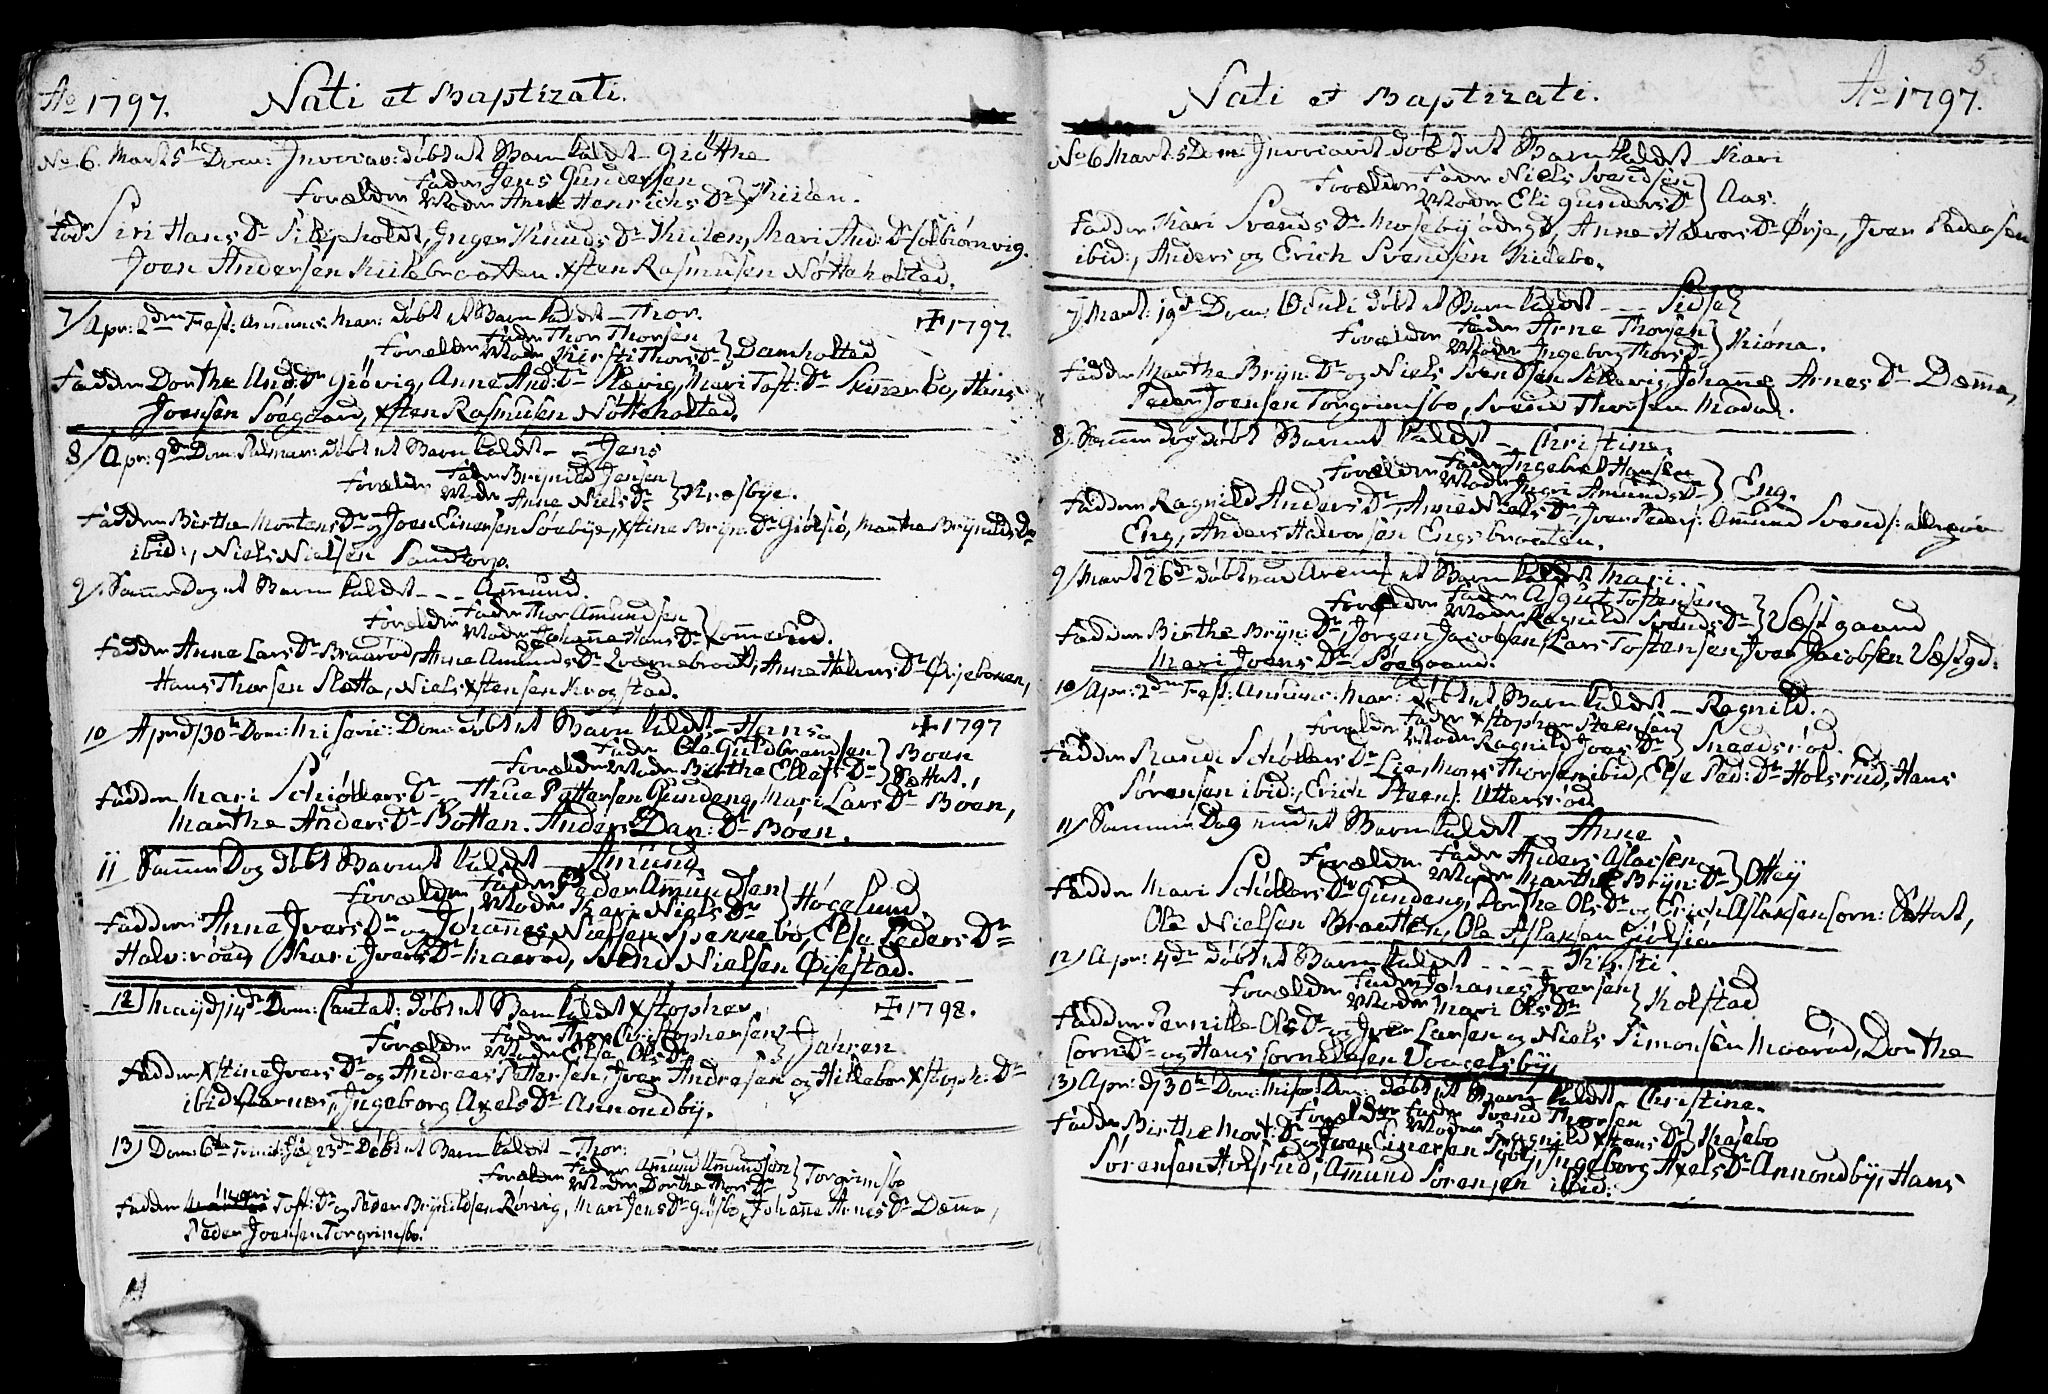 Ao 1797. Nati et Baptizati.
No 6. Mart: 5te Dom: Invocav: døbt et Barn kaldt Giøthe
Forældr Fader Jens Gundersen
Moder Anne Henrichs Dr Kiilen.
Fad: Siri Hans Dr, Inger Knuds Dr Kiilen, Mari And: Dr
Joen Andersen Kiilebraatten. Xsten Rasmusen Nøtteholted.
7/ Apr: 2den Fest: Anunc: Mar: døbt et Barn kaldt - Thor. ✝ 1797.
Forældre Fader Thor Thorsen
Moder Kirsti Thors Dr Damholted
Fadder Dorthe And: Dr Giøvig, Anne And: Dr Slævig, Mari Tost: Dr Skinnerbo, Hans
Joensen Søegaard, Xsten Rasmusen Nøtteholted.
8/ Apr: 9de Dom: Palmar: døbt et Barn kaldt - - Jens
Forældr Fader Brynild Jensen
Moder Anne Niels Dr Kræsbye.
Fadder Birthe Mortens Dr og Joen Einersen Søebye, Xstine Bryn: Dr Giølsiø, Marthe Brynilds Dr
ibid:, Niels Nielsen Sandtorp.
9/ Samme Dag et Barn kaldt - - - Amund.
Forældr Fader Thor Amundsen
Moder Johanne Hans Dr Lommerud.
Fadder Anne Lars Dr Braarød, Anne Amunds Dr Qvernebraat, Anne Halvors Dr Ørjeboen,
Hans Thorsen Slætta, Niels Xstensen Krogstad.
10/ Apr: d/30te Dom: Miseric: Dom: døbt et Barn kaldt - Hans ✝ 1797
Forældr Fader Ole Guldbrandsen Boen
Moder Birthe Ellefs Dr Sættet.
Fadder Mari Schiøllers Dr Thue Pettersen Gundeng, Mari Lars Dr Boen,
Marthe Anders Dr Botten. Anders Dan: Dr Boen.
11 Samme Dag døbt Barnet kaldt - Amund
Forældr Fader Peder Amundsen
Moder Kari Niels Dr Høgelund
Fadder Anne Ivers Dr og Johannes Nielsen Spennebo, Else Peders Dr
Halv:røed, Kari Ivers Dr Maarød, Svend Nielsen Øyestad.
12/ May d/14de Dom: Cantat: døbt et Barn kaldt Xstopher ✝ 1798.
Forældr Fader Thor Christophersen
Moder Else Ols Dr Jahren
Fadder Xstine Ivers Dr og Andreas Pettersen, Iver Andresen og Hillebor Xstoph: Dr
ibid:, Ingeborg Axels Dr Annondby.
13) Dom: 6te Trinit: 23de Døbt et Barn kaldt - Thor:
Forældr Fader Amund Amundsen
Moder Dorthe Thors Dr Torgrimsbo
Fadder Mari Tost: Dr og Peder Brynildsen Rørvig, Mari Jens Dr, Johanne Arnes Dr Dæmma,
Peder Joensen Torgrimsbo.
14
5
Nati et Baptizati. Ao 1797.
No 6 Mart: 5 Dom: Invocavit døbt et Barn kaldt Kari
Forældr Fader Niels Svendsen
Moder Eli Gunders Dr Aas.
Fadder Kari Svends Dr Moseby ødegd, Anne Halvors Dr Ørje, Iver Pedersen
ibid:, Anders og Erich Svendsen Kilebo.
7) Mart: 19de Dom: Oculi døbt et Barn kaldt - - Sidsel
Forældr Fader Arne Thorsen
Moder Ingeborg Thors Dr Kiøna.
Fadder Marthe Bryn: Dr og Niels Svendsen Slævig, Johanne Arnes Dr Dæma,
Peder Joensen Torgrimsbo, Svend Thorsen Modal.
8) Samme dag døbt Barnet kaldt - Christine.
Forældr Fader Ingebret Hansen
Moder Ingri Amunds Dr Eng.
Fadder Ragnild Anders Dr, Anne Niels Dr, Iver Peders: Amund Svends: alle
Eng, Anders Halvorsen Engsbraaten.
9/ Mart: 26de døbt et Barn kaldt Mari.
Forældr Fader Asgut Tostensen
Moder Ragnild Svends Dr Væstgaard
Fadder Birthe Bryn: Dr, Jørgen Jacobsen, Lars Tostensen, Iver Jacobsen Væstgd:
Mari Joens Dr Søegaard.
10/ Apr: 2den Fest: Anunc: Mar: døbt et Barn kaldt - Ragnild.
Forældr Fader Xstopher Steensen
Moder Ragnild Joens Dr Sneedsrød.
Fadder Randi Schøllers Dr Lie, Mons Thorsen ibid, Else Ped: Dr Holsrud, Hans
Sørensen ibid:, Erich Steens: Uttersrød
11/ Samme Dag et Barn kaldt - Anne
Forældr Fader Anders Aslacsen
Moder Marthe Bryn: Dr Ottøy
Fadder Mari Schøllers Dr Gundeng, Dorthe Ols Dr og Erich Aslaksen Corn: Sættet,
Ole Nielsen Braatten, Ole Aslaksen Giølsiø
12/ Apr: 4de døbt et Barn kaldt - - - - Kirsti
Forældr Fader Johanes Iversen
Moder Mari Ols Dr Kolstad
Fadder Pernille Ols Dr og Iver Larsen og Niels Simonsen Maarød, Dorthe
Corn: Dr og Hans Cornelisen Vougelsby,
13) Apr: d/30te Dom: Miser: Dom: døbt et Barn kaldt - Christine.
Forældr Fader Svend Thorsen
Moder Ragnild Xstens Dr Kasebo
Fadder Birthe Mort: Dr og Joen Einersen Søeby, Ingeborg Axels Dr Annondby, Hans
Sørensen Holsrud, Amund Sørensen ibid: